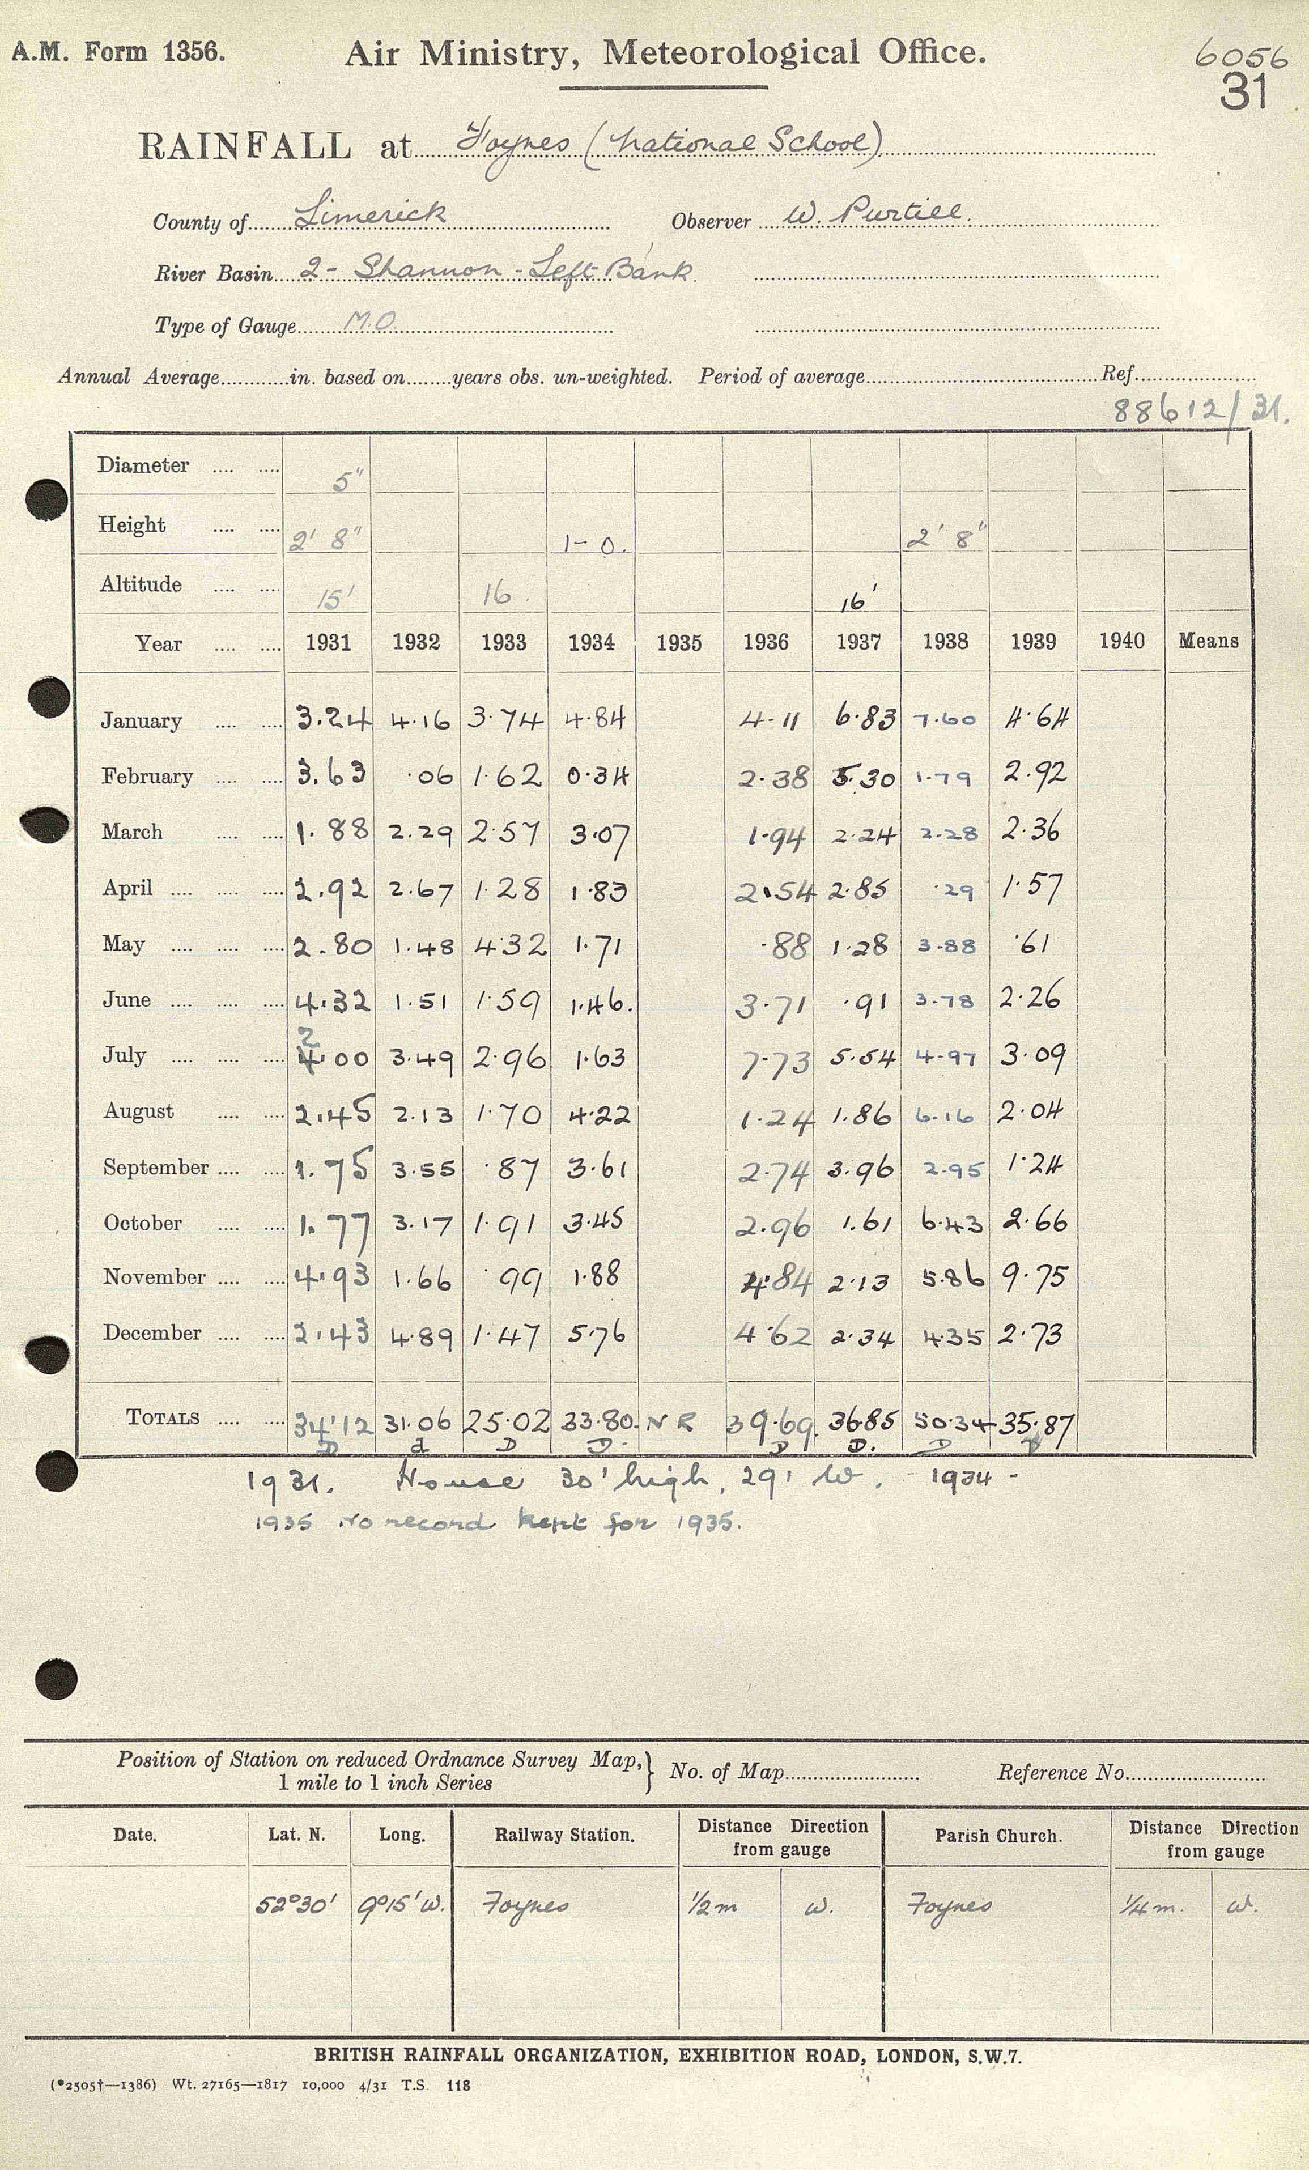 A.M. Form 1356. Air Ministry, Meteorological Office. 6056
31
RAINFALL at Foynes (National School)
County of Limerick Observer W. Purtill.
River Basin 2 - Shannon - Left Bank
Type of Gauge M.O.
Annual Average in. based on years obs. un-weighted. Period of average Ref.
88612/31.
Diameter 5"
Height 2' 8" 1-0. 2' 8"
Altitude 15' 16 16'
Year 1931 1932 1933 1934 1935 1936 1937 1938 1939 1940 Means
January 3.24 4.16 3.74 4.84 4.11 6.83 7.60 4.64
February 3.63 .06 1.62 0.34 2.38 5.30 1.79 2.92
March 1.88 2.29 2.57 3.07 1.94 2.24 2.28 2.36
April 2.92 2.67 1.28 1.83 2.54 2.85 .29 1.57
May 2.80 1.48 4.32 1.71 .88 1.28 3.88 .61
June 4.32 1.51 1.59 1.46. 3.71 .91 3.78 2.26
2
July 4.00 3.49 2.96 1.63 7.73 5.54 4.97 3.09
August 2.45 2.13 1.70 4.22 1.24 1.86 6.16 2.04
September 1.75 3.55 .87 3.61 2.74 3.96 2.95 1.24
October 1.77 3.17 1.91 3.45 2.96 1.61 6.43 2.66
November 4.93 1.66 .99 1.88 4.84 2.13 5.86 9.75
December 2.43 4.89 1.47 5.76 4.62 2.34 4.35 2.73
TOTALS 34.12 31.06 25.02 33.80. N R 39.69. 36.85 50.34 35.87
D d D D. D D. D D
1931. House 30' high, 29' W. 1934 -
1935 No record kept for 1935.
Position of Station on reduced Ordnance Survey Map, 1 mile to 1 inch Series } No. of Map Reference No.
Date. Lat. N. Long. Railway Station. Distance Direction from gauge Parish Church. Distance Direction from gauge
52°30' 9°15'W. Foynes 1/2 m W. Foynes 1/4 m. W.
BRITISH RAINFALL ORGANIZATION, EXHIBITION ROAD, LONDON, S.W.7.
(*2505†—1386) Wt. 27165—1817 10,000 4/31 T.S. 118